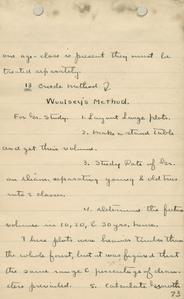 one age-class is present they must be
treated separately.
13 Crude Method
Woolsey's Method.
For Gr. Study. 1. Lay out large plots.
2. Make a stand table
and get their volume.
3. Study Rate of Gr.
on diam, separating young & old trees
into 2 classes.
4. Determine the future
volume in 10, 20, & 30 yrs. hence.
These plots were heavier timber than
the whole forest, but it was figured that
the same range & percentage of
provided. 5. Calculate Growth
73